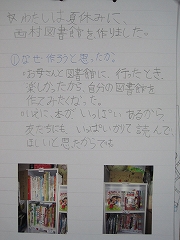 わたしは夏休みに、
西村図書館を作りました。
① なぜ作ろうと思ったか。
・お母さんと図書館に、行ったとき、
楽しかったから、自分の図書館を
作ってみたくなった。
・いえに、本がいっぱいあるから
友だちにも、いっぱいかりて読んで、
ほしいと思ったからです